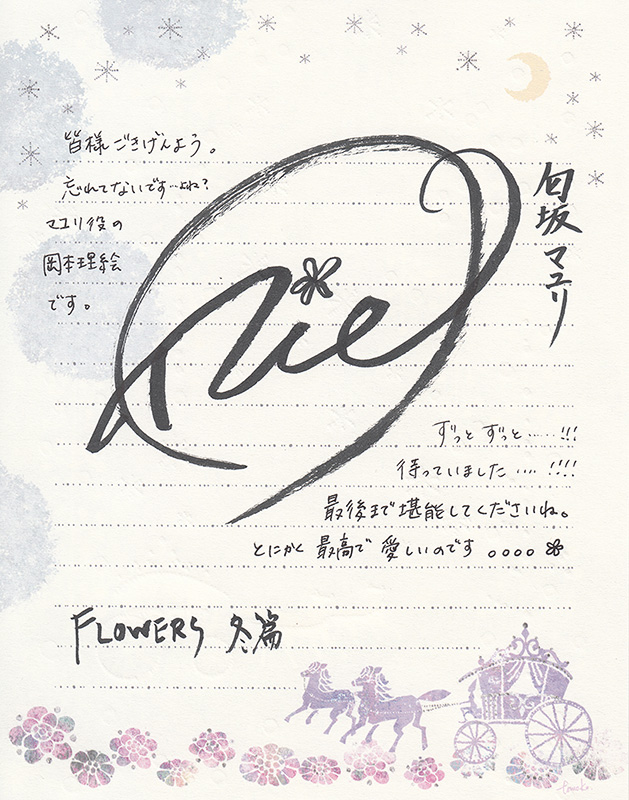 皆様ごきげんよう。
忘れてないです…よね?
マユリ役の
岡本理絵
です。
Rie
匂坂マユリ
ずっと ずっと……!!!
待っていました…. !!!!
最後まで堪能してくださいね。
とにかく 最高で 愛しいのです 。。。。
FLOWERS 冬篇